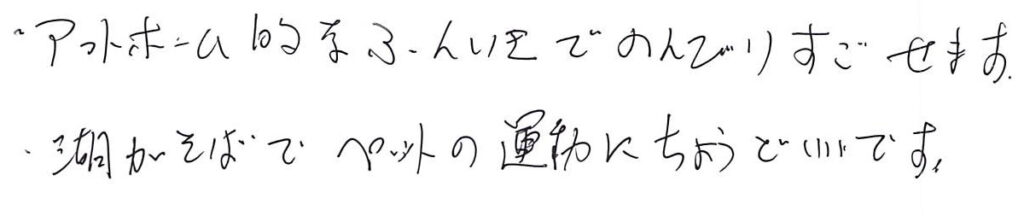 ・アットホーム的なふんいきでのんびりすごせます。
・湖がそばでペットの運動にちょうどいいです。